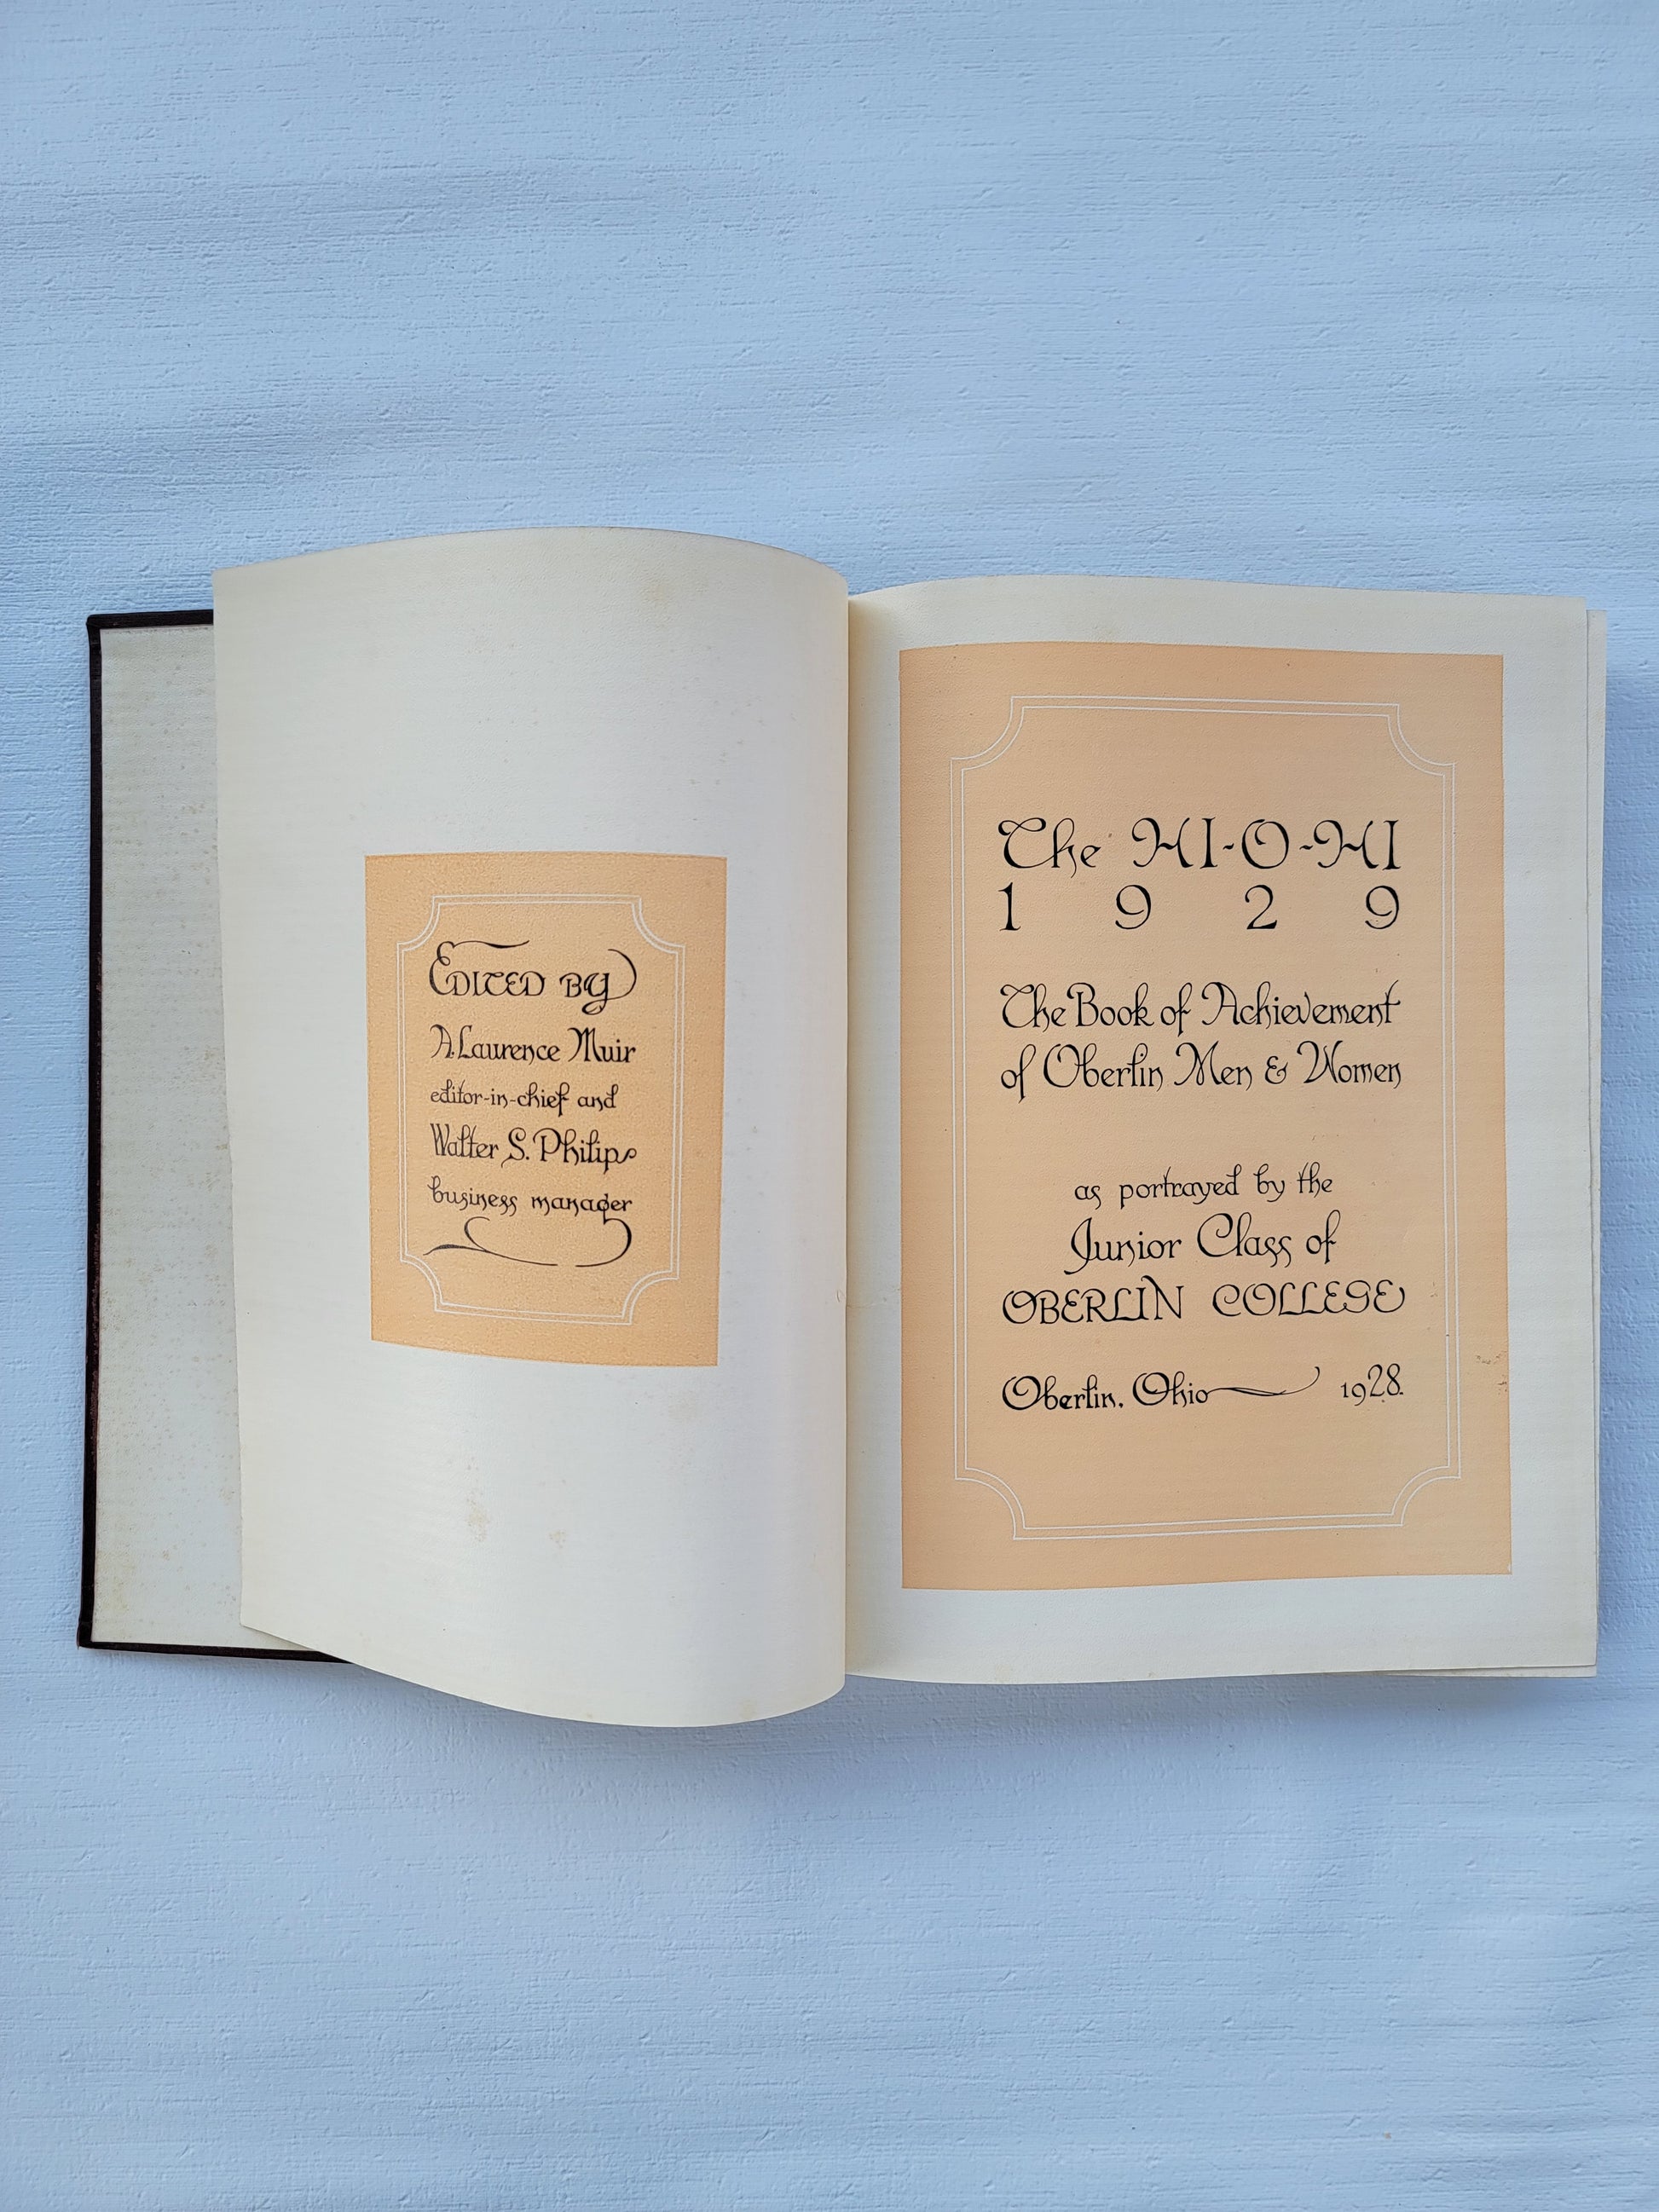 EDITED BY
A. Laurence Muir
editor-in-chief and
Walter S. Philips
business manager
The HI-O-HI
1 9 2 9
The Book of Achievement
of Oberlin Men & Women
as portrayed by the
Junior Class of
OBERLIN COLLEGE
Oberlin, Ohio 1928.